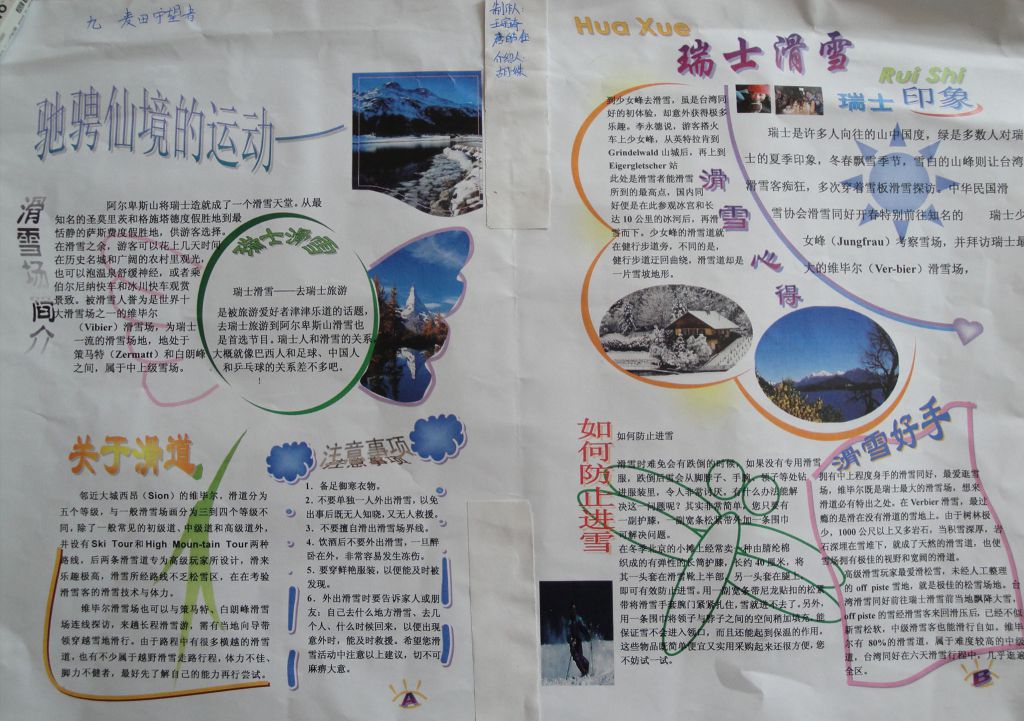 九 麦田守望者
制作人:
介绍人
驰骋仙境的运动
滑雪场简介
阿尔卑斯将瑞士造就成了一个滑雪天堂。从最
知名的圣莫里茨和格施塔德度假胜地到最
恬静的萨斯费度假胜地，供游客选择。
在滑雪之余，游客可以花上几天时间
在历史名城和广阔的农村里观光，
也可以泡温泉舒缓神经，或者乘
伯尔尼纳快车和冰川快车观赏
景致。被滑雪人誉为是世界十
大滑雪场之一的维毕尔
（Vibier）滑雪场，为瑞士
一流的滑雪场地，地处于
策马特（Zermatt）和白朗峰
之间，属于中上级雪场。
瑞士滑雪——去瑞士旅游
是被旅游爱好者津津乐道的话题，
去瑞士旅游到阿尔卑斯山滑雪也
是首选节目。瑞士人和滑雪的关系
大概就像巴西人和足球、中国人
和乒乓球的关系差不多吧。
！
关于滑道
邻近大城西昂（Sion）的维毕尔，滑道分为
五个等级，与一般滑雪场画分为三到四个等级不
同，除了一般常见的初级道、中级道和高级道外，
并设有Ski Tour和High Moun-tain Tour两种
路线，后两条滑道专为高级玩家所设计，滑来
乐趣极高，滑雪所经路线不乏松雪区，在在考验
滑雪客的滑雪技术与体力。
维毕尔滑雪场也可以与策马特、白朗峰滑雪
场连线探访，来趟长程滑雪游，需有当地向导带
领穿越雪地滑行。由于路程中有很多横越的滑雪
道，也有不少属于越野滑雪走路行程，体力不佳、
脚力不健者，最好先了解自己的能力再行尝试。
注意事项
1．备足御寒衣物。
2．不要单独一人外出滑雪，以免
出事后既无人知晓，又无人救援。
3．不要擅自滑出滑雪场界线。
4．饮酒后不要外出滑雪，一旦醉
卧在外，非常容易发生冻伤。
5．要穿鲜艳服装，以便能及时被
发现。
6．外出滑雪时要告诉家人或朋
友：自己去什么地方滑雪、去几
个人、什么时候回来，以便出现
意外时，能及时救援。希望您滑
雪活动中注意以上建议，切不可
麻痹大意。
A
Hua Xue
瑞士滑雪
Rui Shi
瑞士 印象
到少女峰去滑雪，虽是台湾同
好的初体验，却意外获得极多
乐趣。李永德说，游客搭火
车上少女峰，从英特拉肯到
Grindelwald 山城后，再上到
Eigergletscher 站
此处是滑雪者能滑雪
所到的最高点，国内同
好便是在此参观冰宫和长
达 10 公里的冰河后，再滑
雪而下。少女峰的滑雪道就
在健行步道旁，不同的是，
健行步道迂回曲绕，滑雪道却是
一片雪坡地形。
滑雪心得
瑞士是许多人向往的山中国度，绿是多数人对瑞
士的夏季印象，冬春飘雪季节，雪白的山峰则让台湾
滑雪客痴狂，多次穿着雪板滑雪探访。中华民国滑
雪协会滑雪同好开春特别前往知名的 瑞士少
女峰（Jungfrau）考察雪场，并拜访瑞士最
大的维毕尔（Ver-bier）滑雪场，
如何防止进雪
如何防止进雪
滑雪时难免会有跌倒的时候，如果没有专用滑雪
服，跌倒后雪会从脚脖子、手腕、领子等处钻
进服装里，令人非常讨厌，有什么办法能解
决这一问题呢？其实非常简单，您只要有
一副护膝，一副宽条松紧带外加一条围巾
可解决问题。
在冬季北京的小摊上经常卖一种由腈纶棉
织成的有弹性的长筒护膝，长约 40 厘米，将
其一头套在滑雪靴上半部，另一头套在腿上，
即可有效防止进雪。用一副宽条带尼龙贴扣的松紧
带将滑雪手套腕门紧紧扎住，雪就进不去了。另外，
用一条围巾将领子与脖子之间的空间稍加填充，能
保证雪不会进入领口，而且还能起到保温的作用。
这些物品既简单便宜又实用采购起来还很方便，您
不妨试一试。
滑雪好手
拥有中上程度身手的滑雪同好，最爱逛雪
场，维毕尔既是瑞士最大的滑雪场，想来
滑道必有特出之处。在 Verbier 滑雪，最过
瘾的是滑在没有滑道的雪地上。由于树林极
少，1000 公尺以上又多岩石，当积雪深厚，岩
石深埋在雪堆下，就成了天然的滑雪道，也使
雪场拥有极佳的视野和宽阔的滑道。
高级滑雪玩家最爱滑松雪，未经人工整理
的 off piste 雪地，就是极佳的松雪场地。台
湾滑雪同好前往瑞士滑雪前当地飘降大雪，
off piste 的雪经滑雪客来回滑压后，已经不似
新雪松软，中级滑雪客也能滑行自如。维毕
尔有 80%的滑雪道，属于难度较高的中级
道，台湾同好在六天滑雪行程中，几乎逛遍
全区。
B